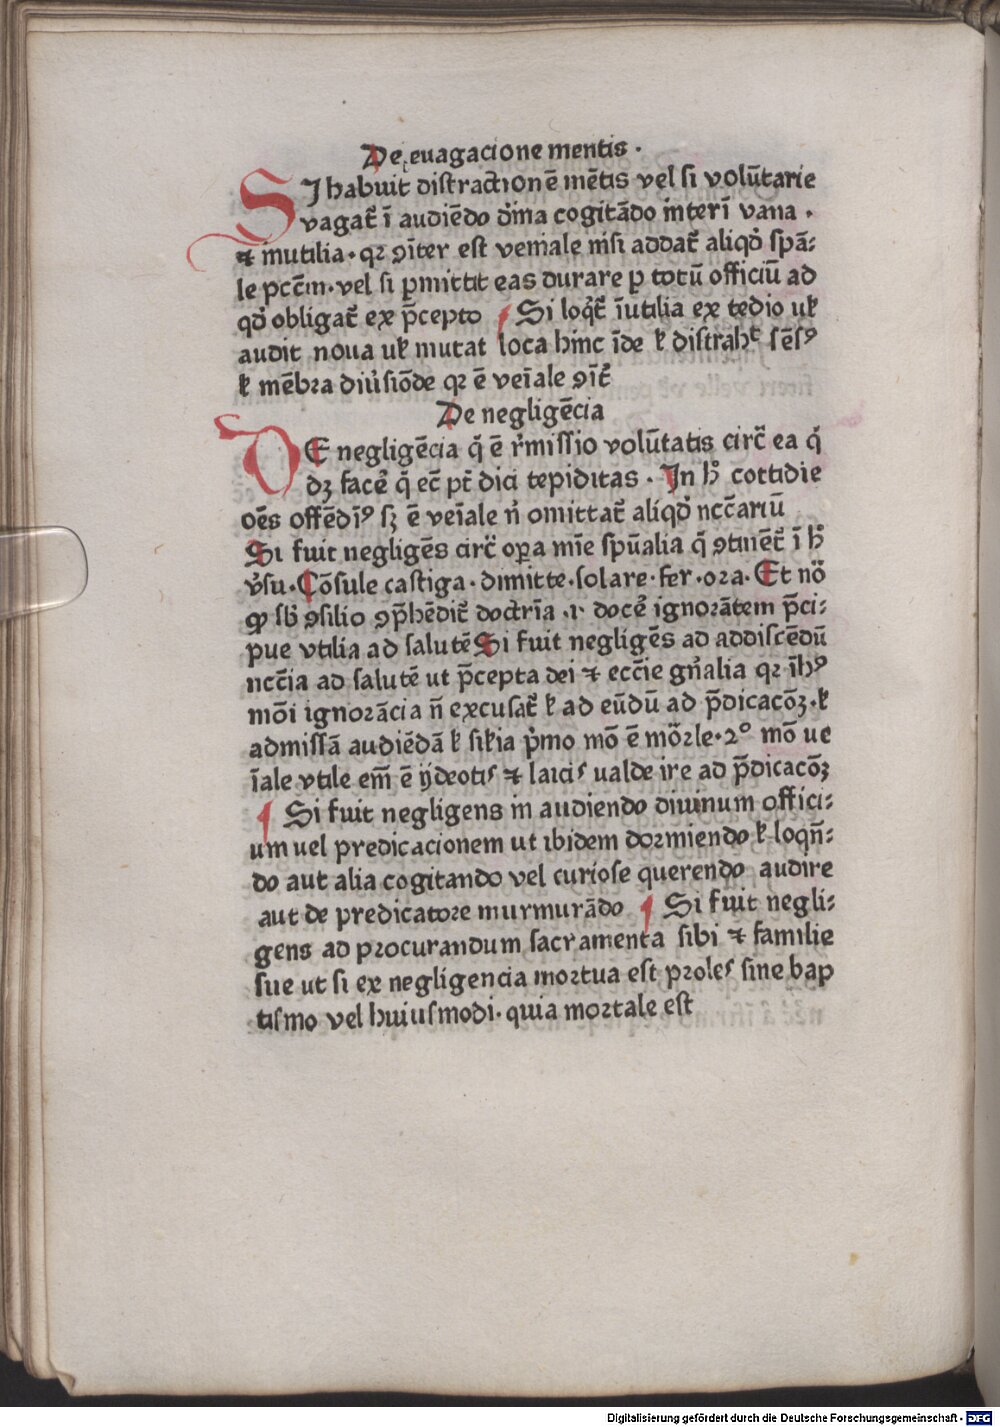 De euagacione mentis ·
SI habuit distractionē mētis vel si volūtarie
vagat᷑ ī audiēdo dīna cogitādo interī vana ·
⁊ inutilia · qꝛ ꝯīter est veniale nisi addat᷑ aliqd̓ spā⸗
le pcc̄m · vel si ꝑmittit eas durare ꝑ totū officiū ad
qd̓ obligat᷑ ex p̄cepto Si loqt᷑ īutilia ex tedio uł
audit noua uł mutat loca hinc īde ł distrahᵗ sēsꝰ
ł mēbra diūsiōde qꝛ ē veīale ꝯīt᷑
De negligēcia
DE negligēcia q̄ ē r̓missio volūtatis circ̄ ea q̄
dꝫ facē q̄ ec̄ pt̄ dici tepiditas · In hͦ cottidie
oēs offēdīꝰ sꝫ ē veīale n̓ omittat᷑ aliqd̓ ncc̄ariū
Si fuit negligēs circ̄ oꝑa mīe spūalia q̄ ꝯtinēt᷑ ī hͦ
v̓su · Cōsule castiga · dimitte · solare · fer · oꝛa · Et nō
ꝙ sb̓ ꝯsilio ꝯp̄hēdit᷑ doctrīa · i · docē ignorātem p̄ci⸗
pue vtilia ad salutē Si fuit negligēs ad addiscēdū
ncc̄ia ad salutē ut p̄cepta dei ⁊ ecc̄ie gn̄alia qꝛ īhꝰ
mōi ignorācia n̄ excusat᷑ ł ad eūdū ad p̄dicacōꝫ · ł
admissā audiēdā ł siłia p̓mo mō ē mōrle · 2° mō ue
īale vtile em̄ ē ydeotis ⁊ laicis ualde ire ad p̄dicacōꝫ
Si fuit negligens in audiendo diuinum offici⸗
um uel predicacionem ut ibidem doꝛmiendo ł loqn̄⸗
do aut alia cogitando vel curiose querendo audire
aut de predicatoꝛe murmurādo Si fuit negli⸗
gens ad procurandum sacramenta sibi ⁊ familie
sue ut si ex negligencia moꝛtua est proles sine bap
tismo vel huiusmodi · quia moꝛtale est
Digitalisierung gefördert durch die Deutsche Forschungsgemeinschaft - DFG